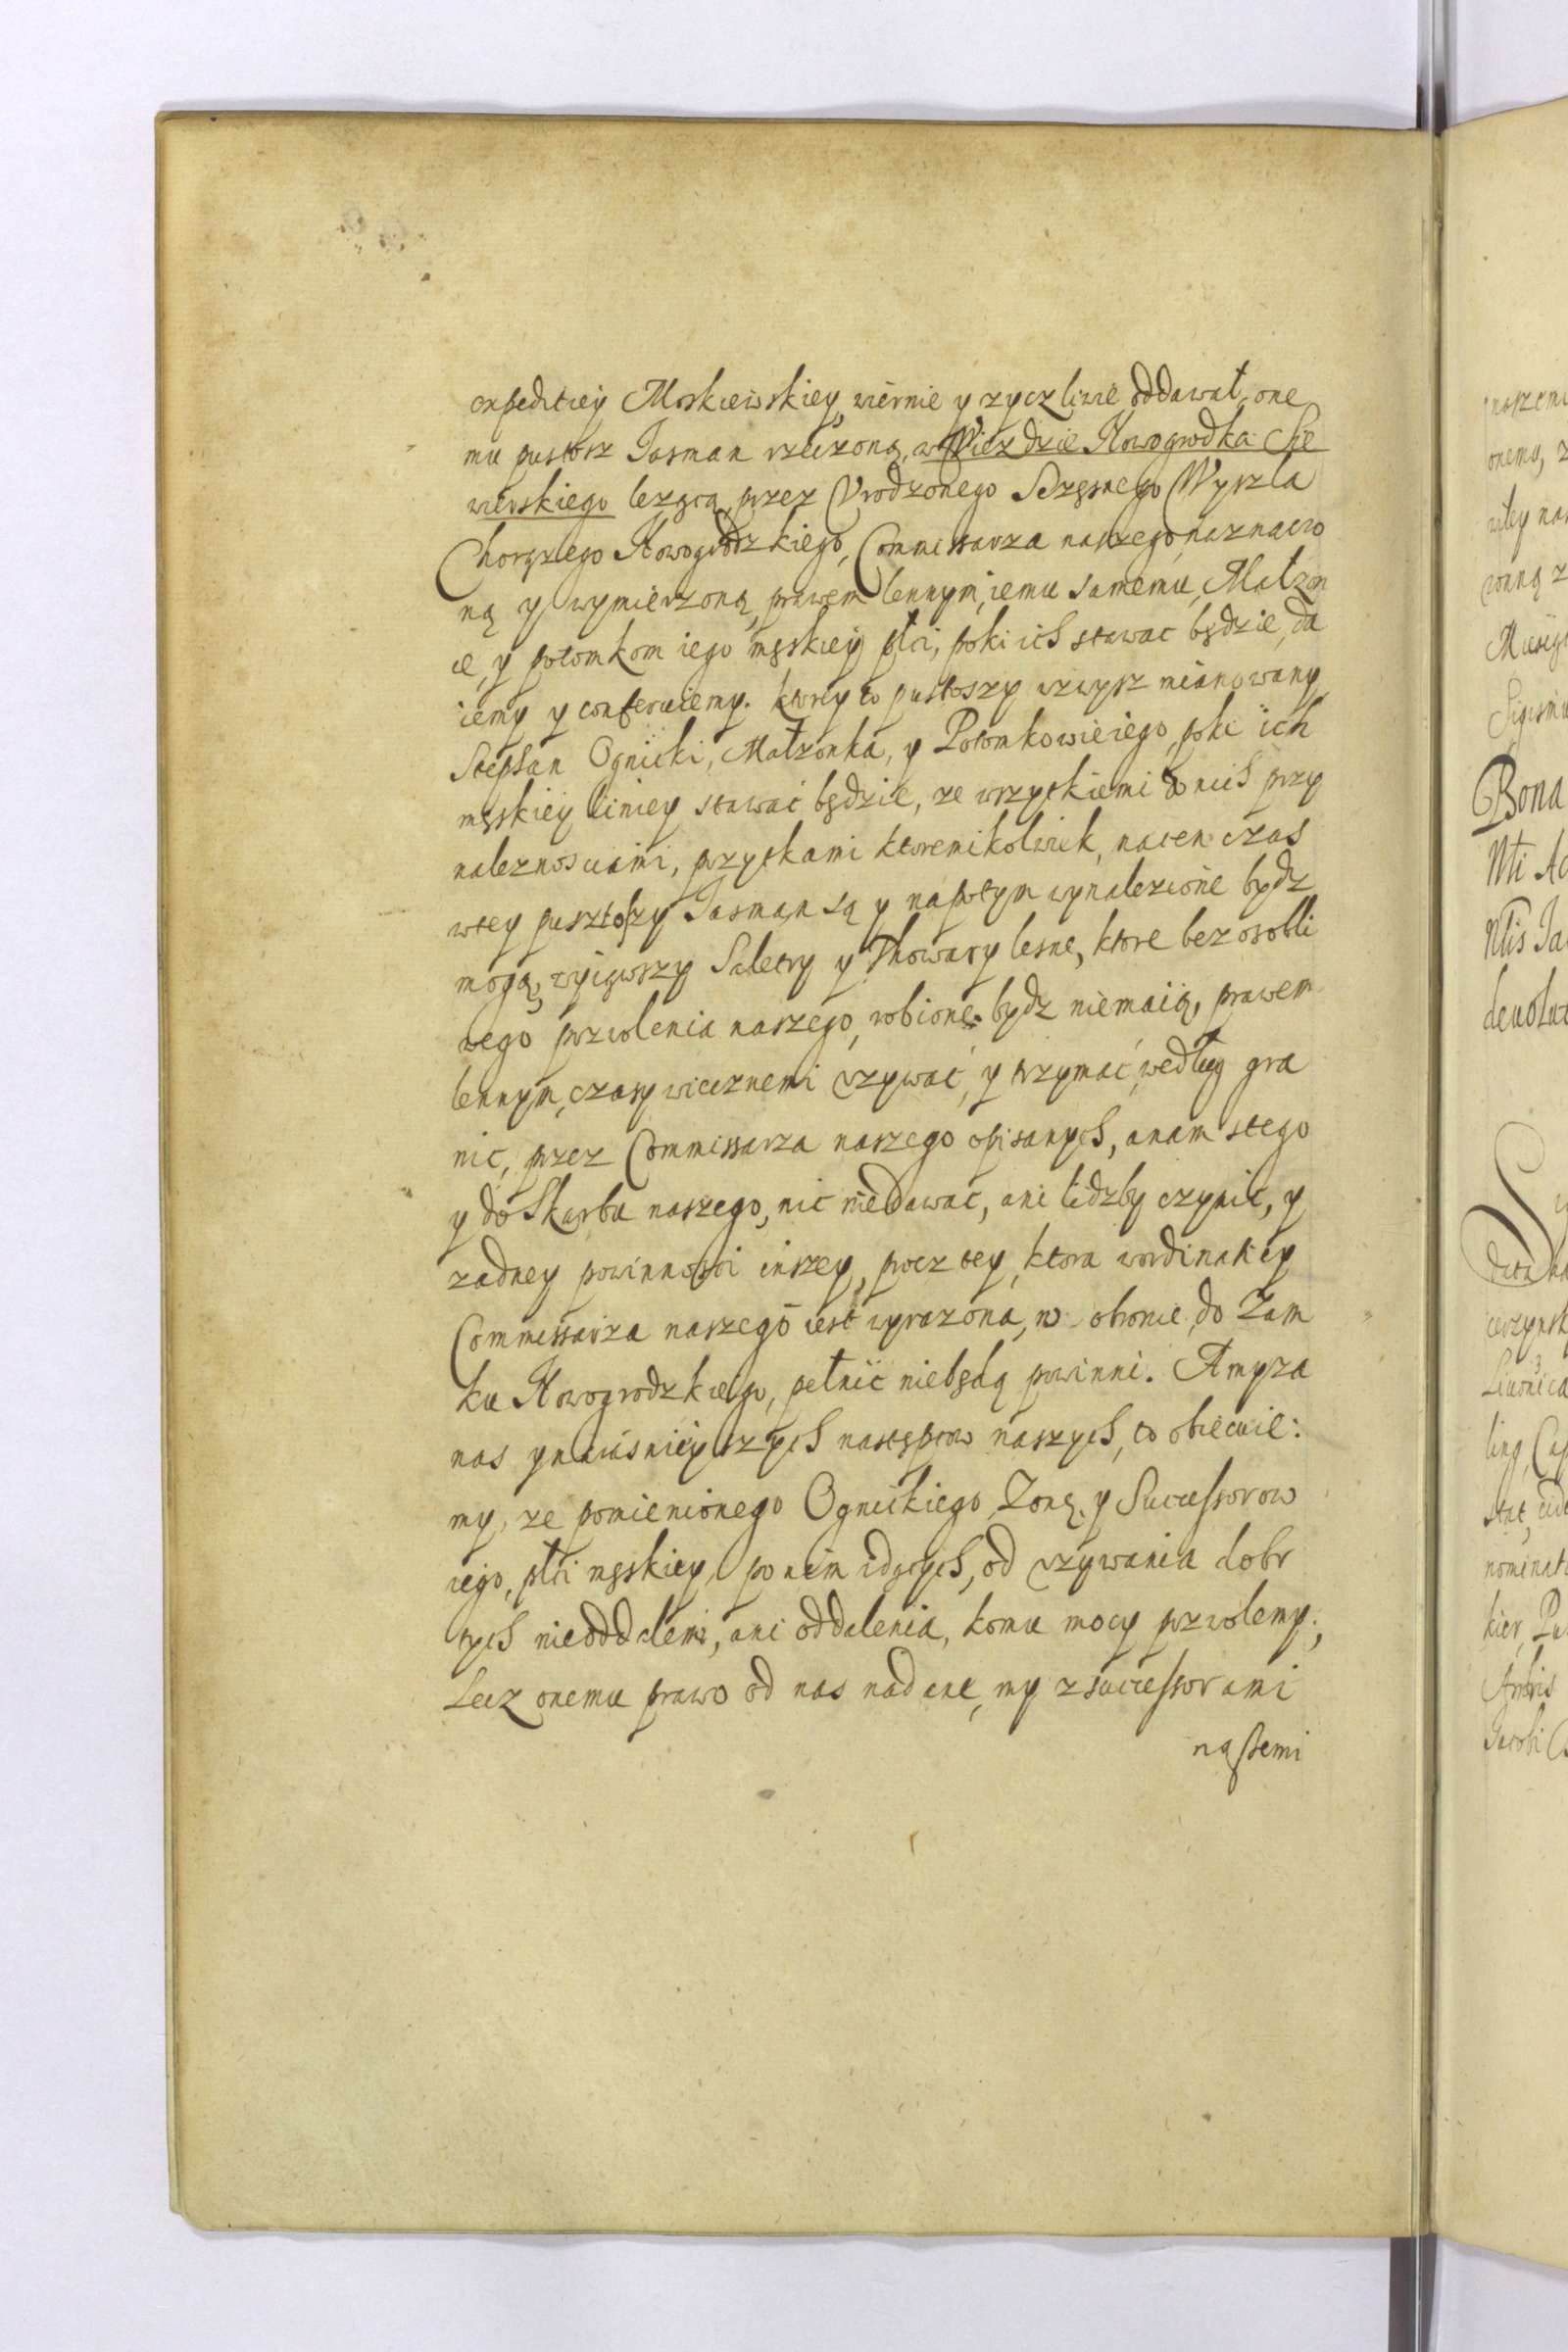 expeditiey Moskiewskiey, wiernie y zyczliwie oddawał, one
mu pustosz Jasman rzeczoną, w Wiezdzie Nowogrodka Sie
wierskiego lezącą, przez Vrodzonego Sczęsnego Wyszla
Chorązego Nowogrodzkiego, Commissarza naszego, naznaczo
ną y wymierzoną, prawem lennym, iemu samemu, Małzon
ce, y potomkom iego męskiey płci, poki ich stawac będzie, da
iemy y conferuiemy. ktorey to pustoszy wzwysz mianowany
Stephan Ognicki, Małzonka, y Potomkowie iego, poki ich
męskiey liniey stawać będzie, ze wszytkiemi do nich przy
naleznosciami, pozytkami ktoremikolwiek, na ten czas
wtey pusztoszy Jasman są y napotym wynalezione bydz
mogą, wyiąwszy Saletry y Thowary lesne, ktore bez osobli
wego pozwolenia naszego, robione bydz niemaią, prawem
lennym, czasy wiecznemi vzywać, y trzymać, według gra
nic, przez Commissarza naszego opisanych, a nam stego
y do Skarbu naszego, nic niedawac, ani lidzby czynic, y
zadney powinnosci inszey, procz tey, ktora wordinatiey
Commissarza naszego iest wyrazona, w obronie, do Zam
ku Nowogrodzkiego, pełnić niebędą powinni. A my za
nas y naiasnieyszych nastęmpcow naszych, to obiecuie:
my, ze pomienionego Ognickiego, Zonę, y Successorow
iego, płci męskiey, po nim idących, od vzywania dobr
tych nieoddalemi, ani oddalenia, komu mocy pozwolemy;
Lecz onemu prawo od nas nadane, my z successorami
naszemi